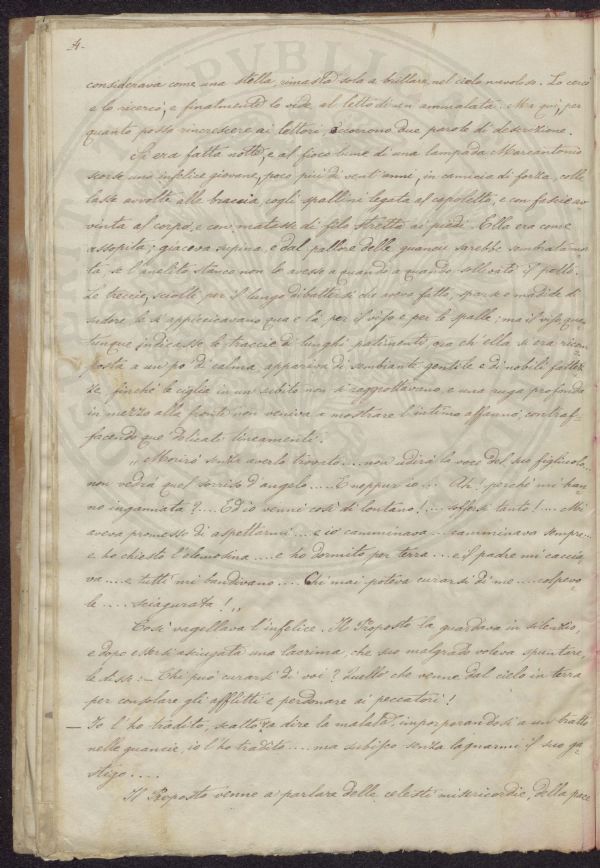 4.
considerava come una stella, rimasta sola a brillare, nel cielo nuvoloso. Lo cercò
e lo ricercò, e finalmente lo vide al letto di un ammalata. Ma qui, per
quanto possa rincrescere ai lettori, occorrono due parole di descrizione.
Si era fatta notte, e al fioco lume di una lampada Marcantonio
scorse una infelice giovane, poco più di vent'anni, in camicia di forza, colle
tasse avvolte alle braccia, cogli spallini legata al capoletto, e con fascie av
vinta al corpo, e con matasse di filo stretta ai piedi. Ella era come
assopita; giaceva supina, e dal pallore delle guancie sarebbe sembrata mor
ta se l'anelito stanco non le avesse a quando a quando sollevato il petto.
Le treccie, sciolte per il lungo dibattersi che aveva fatto, sparse e madide di
sudore le si appiccicavano qua e là per il viso e per le spalle; ma il viso, quan
tunque indicasse le traccie di lunghi patimenti, ora ch'ella si era ricom
posta a un po' di calma, appariva di sembiante gentile e di nobili fattez
ze, finchè le ciglia in un subito non si raggrottavano, e una ruga profonda
in mezzo alla fronte non veniva a mostrare l'intimo affanno, contraf-
facendo que' delicati lineamenti.
"Morirò senza averlo trovato.... non udirà la voce del suo figliuolo...
non vedrà quel sorriso d'angelo..... E neppur io.... Ah! perchè mi han
no ingannata?.... Ed io venni così di lontano!.... soffersi tanto!.... Mi
aveva promesso di aspettarmi.... e io camminava.... camminava sempre...
e ho chiesto l'elemosina.... e ho dormito per terra.... e il padre mi caccia
va.... e tutti mi bandivano.... Chi mai poteva curarsi di me.... colpevo
le..... sciagurata!"
Così vagellava l'infelice. Il Proposto la guardava in silenzio,
e dopo essersi asciugata una lacrima, che suo malgrado voleva spuntare,
le disse: — Chi può curarsi di voi? Quello che venne dal cielo in terra
per consolare gli afflitti e perdonare ai peccatori!
— Io l'ho tradito, scattò a dire la malata, imporporandosi a un tratto
nelle guancie, io l'ho tradito.... ma subisco senza lagnarmi il suo ga-
stigo....
Il Proposto venne a parlare delle celesti misericordie, della pace